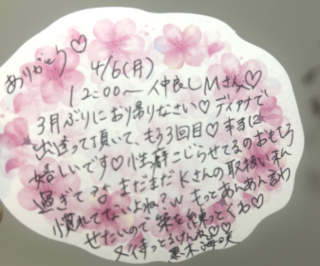 ありがとう♡
4/6(月)
12:00〜 仲良しMさん♡
3月ぶりにおり帰りなさい♡ ディアナで
出逢って頂いて、もう3回目♡ まぢに
嬉しいです♡ 性癖こじらせてるのおもしろ
過ぎて まだまだKさんの取扱い私
慣れてないよね?w もっとあんあん言わ
せたいので 策を練っとくね♡
又待っとるけん♡